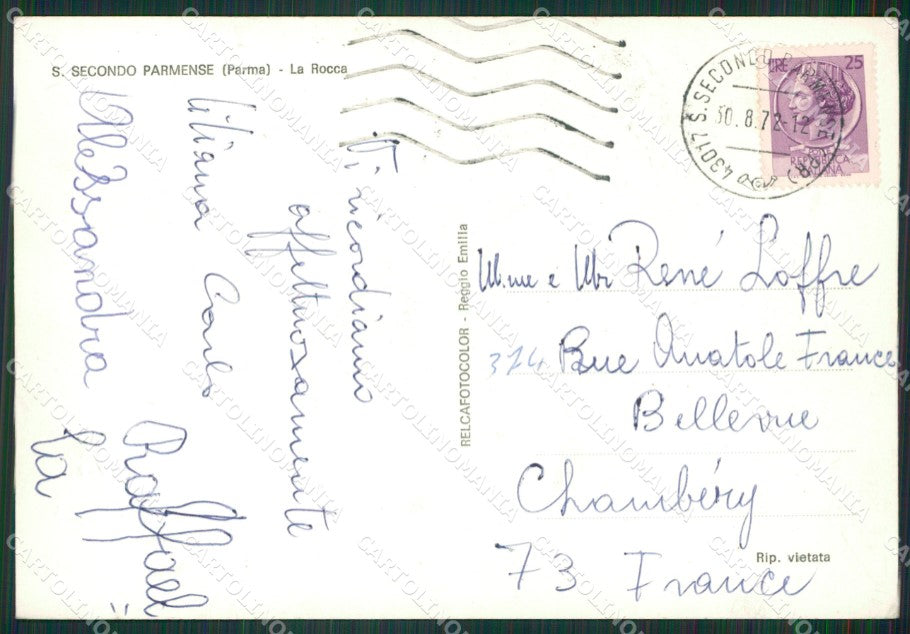 S. SECONDO PARMENSE (Parma) - La Rocca
Vi ricordiamo
affettuosamente
Liliana Carlo Raffael
Alessandra la
RELCAFOTOCOLOR - Reggio Emilia
43017 S. SECONDO PARMENSE (PR)
30.8.72-12
LIRE 25
REPUBBLICA
ITALIANA
M.me e Mr René Loffre
314 Bue Anatole France
Bellevue
Chambéry
73 France
Rip. vietata
CARTOLINOMANIA